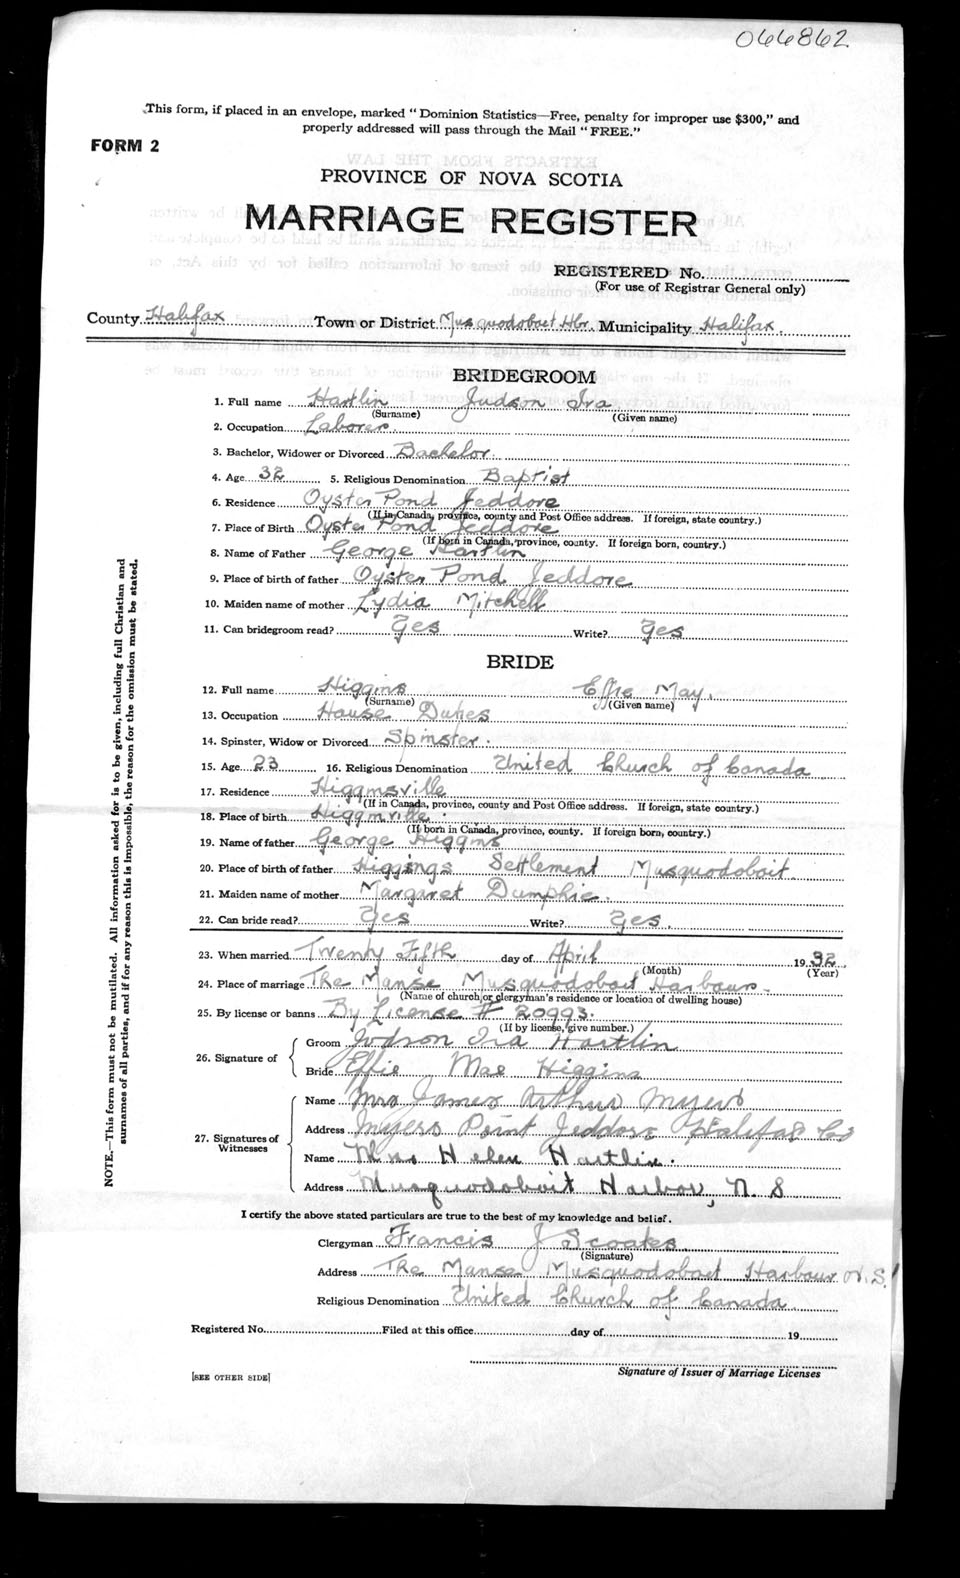 066862
This form, if placed in an envelope, marked "Dominion Statistics—Free, penalty for improper use $300," and
properly addressed will pass through the Mail "FREE."
FORM 2
PROVINCE OF NOVA SCOTIA
MARRIAGE REGISTER
REGISTERED No.
(For use of Registrar General only)
County Halifax Town or District Musquodoboit Hbr. Municipality Halifax.
BRIDEGROOM
1. Full name Hartlin Judson Ira
(Surname) (Given name)
2. Occupation Laborer.
3. Bachelor, Widower or Divorced Bachelor.
4. Age 32 5. Religious Denomination Baptist
6. Residence Oyster Pond Jeddore
(If in Canada, province, county and Post Office address. If foreign, state country.)
7. Place of Birth Oyster Pond Jeddore
(If born in Canada, province, county. If foreign born, country.)
8. Name of Father George Hartlin
9. Place of birth of father Oyster Pond Jeddore
10. Maiden name of mother Lydia Mitchell
11. Can bridegroom read? Yes Write? Yes
BRIDE
12. Full name Higgins Effie May.
(Surname) (Given name)
13. Occupation House Duties
14. Spinster, Widow or Divorced Spinster.
15. Age 23 16. Religious Denomination United Church of Canada
17. Residence Higginsville
(If in Canada, province, county and Post Office address. If foreign, state country.)
18. Place of birth Higginville
(If born in Canada, province, county. If foreign born, country.)
19. Name of father George Higgins
20. Place of birth of father Higgings Settlement Musquodoboit
21. Maiden name of mother Margaret Dumphie.
22. Can bride read? Yes Write? Yes.
23. When married Twenty Fifth day of April 1932
(Month) (Year)
24. Place of marriage The Manse Musquodoboit Harbour.
(Name of church or clergyman's residence or location of dwelling house)
25. By license or banns By License # 20993.
(If by license, give number.)
26. Signature of
Groom Judson Ira Hartlin
Bride Effie Mae Higgins
27. Signatures of
Witnesses
Name Mrs James Arthur Myers
Address Myers Point Jeddore Halifax Co
Name Mrs Helen Hartlin.
Address Musquodoboit Harbor, N. S
I certify the above stated particulars are true to the best of my knowledge and belief.
Clergyman Francis J Scoates
(Signature)
Address The Manse Musquodoboit Harbour N.S.
Religious Denomination United Church of Canada
Registered No. Filed at this office day of 19
Signature of Issuer of Marriage Licenses
[SEE OTHER SIDE]
NOTE.—This form must not be mutilated. All information asked for is to be given, including full Christian and
surnames of all parties, and if for any reason this is impossible, the reason for the omission must be stated.